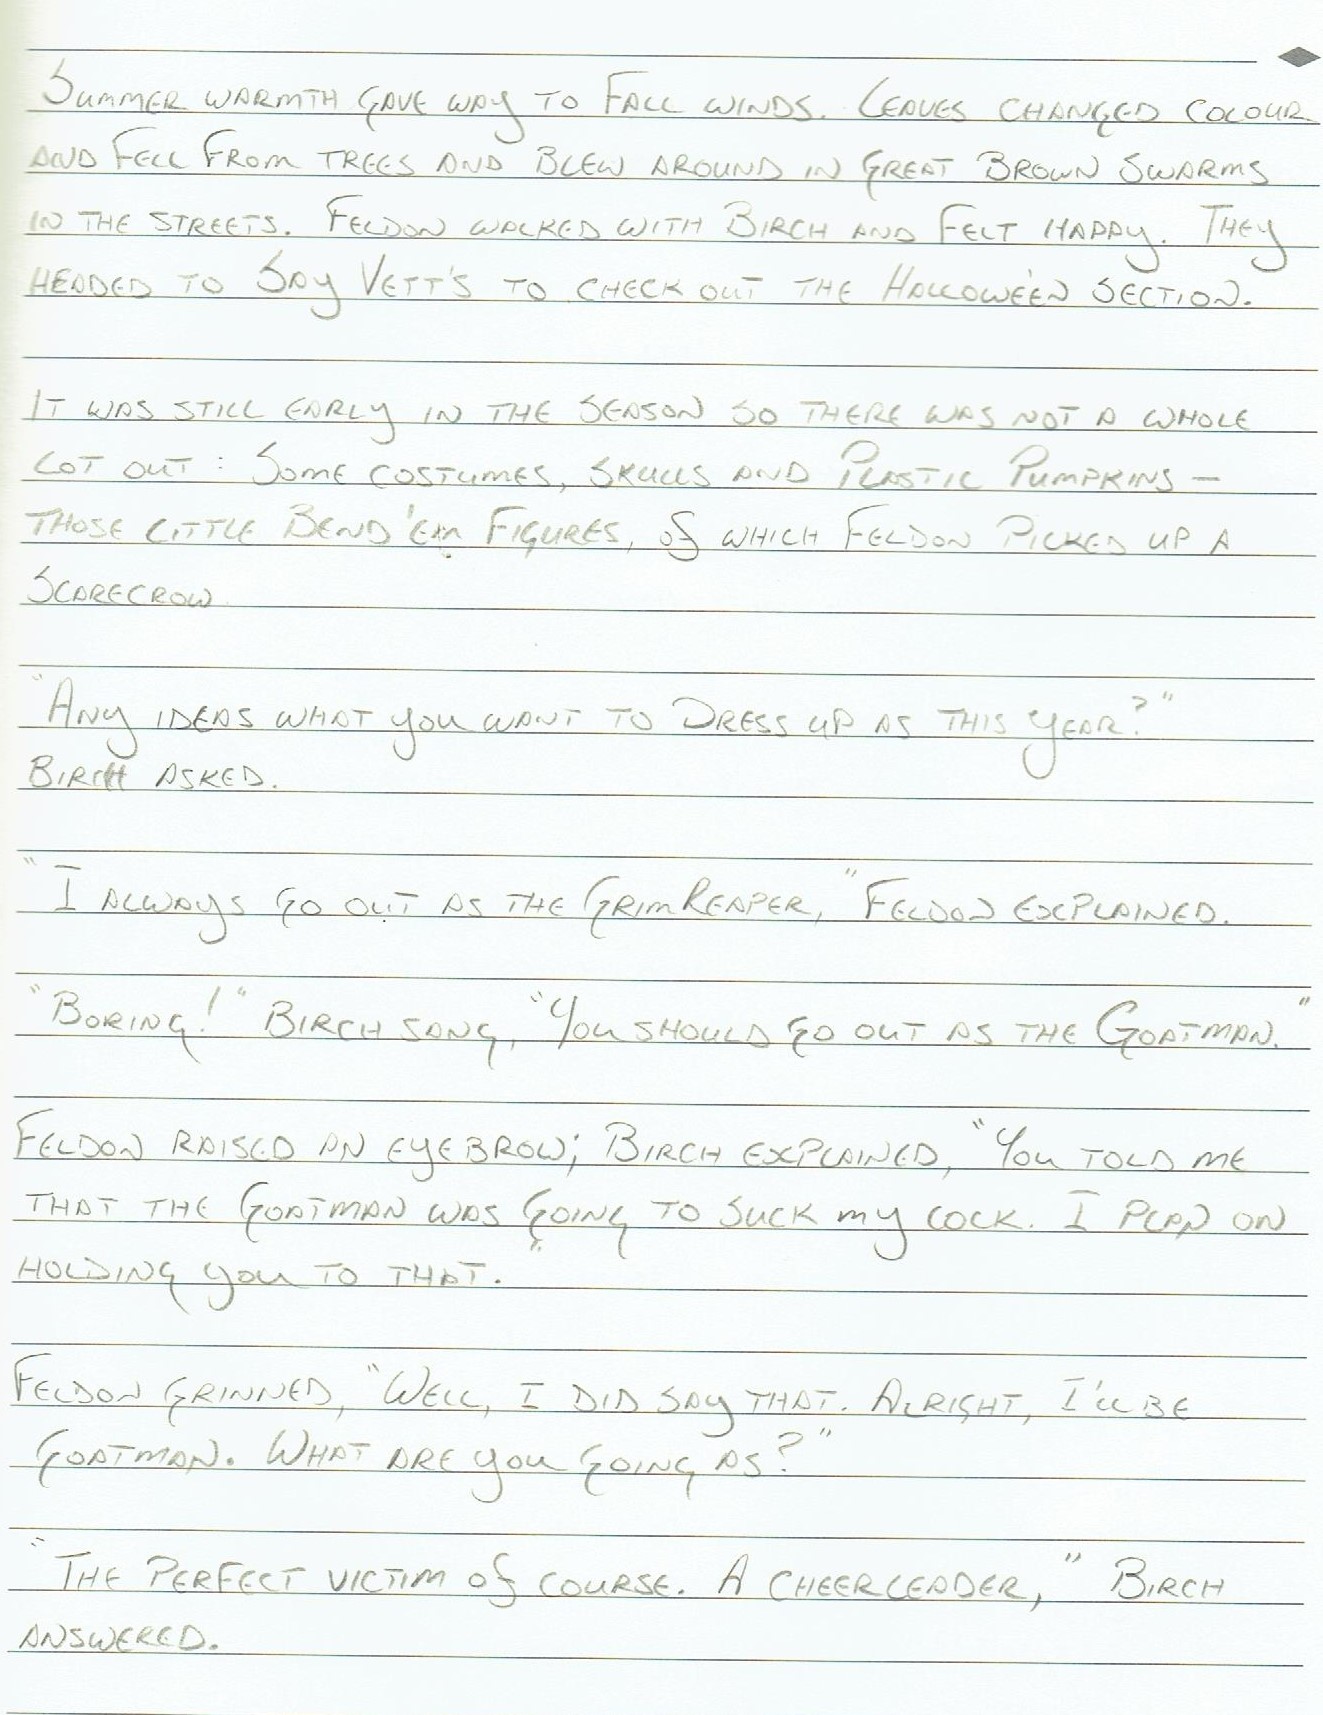 Summer warmth gave way to Fall winds. Leaves changed colour
and fell from trees and blew around in great brown swarms
in the streets. Feldon walked with Birch and felt happy. They
headed to Say Vett's to check out the Hallowe'en section.
It was still early in the season so there was not a whole
lot out: Some costumes, skulls and plastic pumpkins –
those little Bend 'em figures, of which Feldon picked up a
scarecrow.
"Any ideas what you want to dress up as this year?"
Birch asked.
"I always go out as the Grim Reaper," Feldon explained.
"Boring!" Birch sang, "You should go out as the Goatman."
Feldon raised an eyebrow; Birch explained, "You told me
that the Goatman was going to suck my cock. I plan on
holding you to that."
Feldon grinned, "Well, I did say that. Alright, I'll be
Goatman. What are you going as?"
"The perfect victim of course. A cheerleader," Birch
answered.